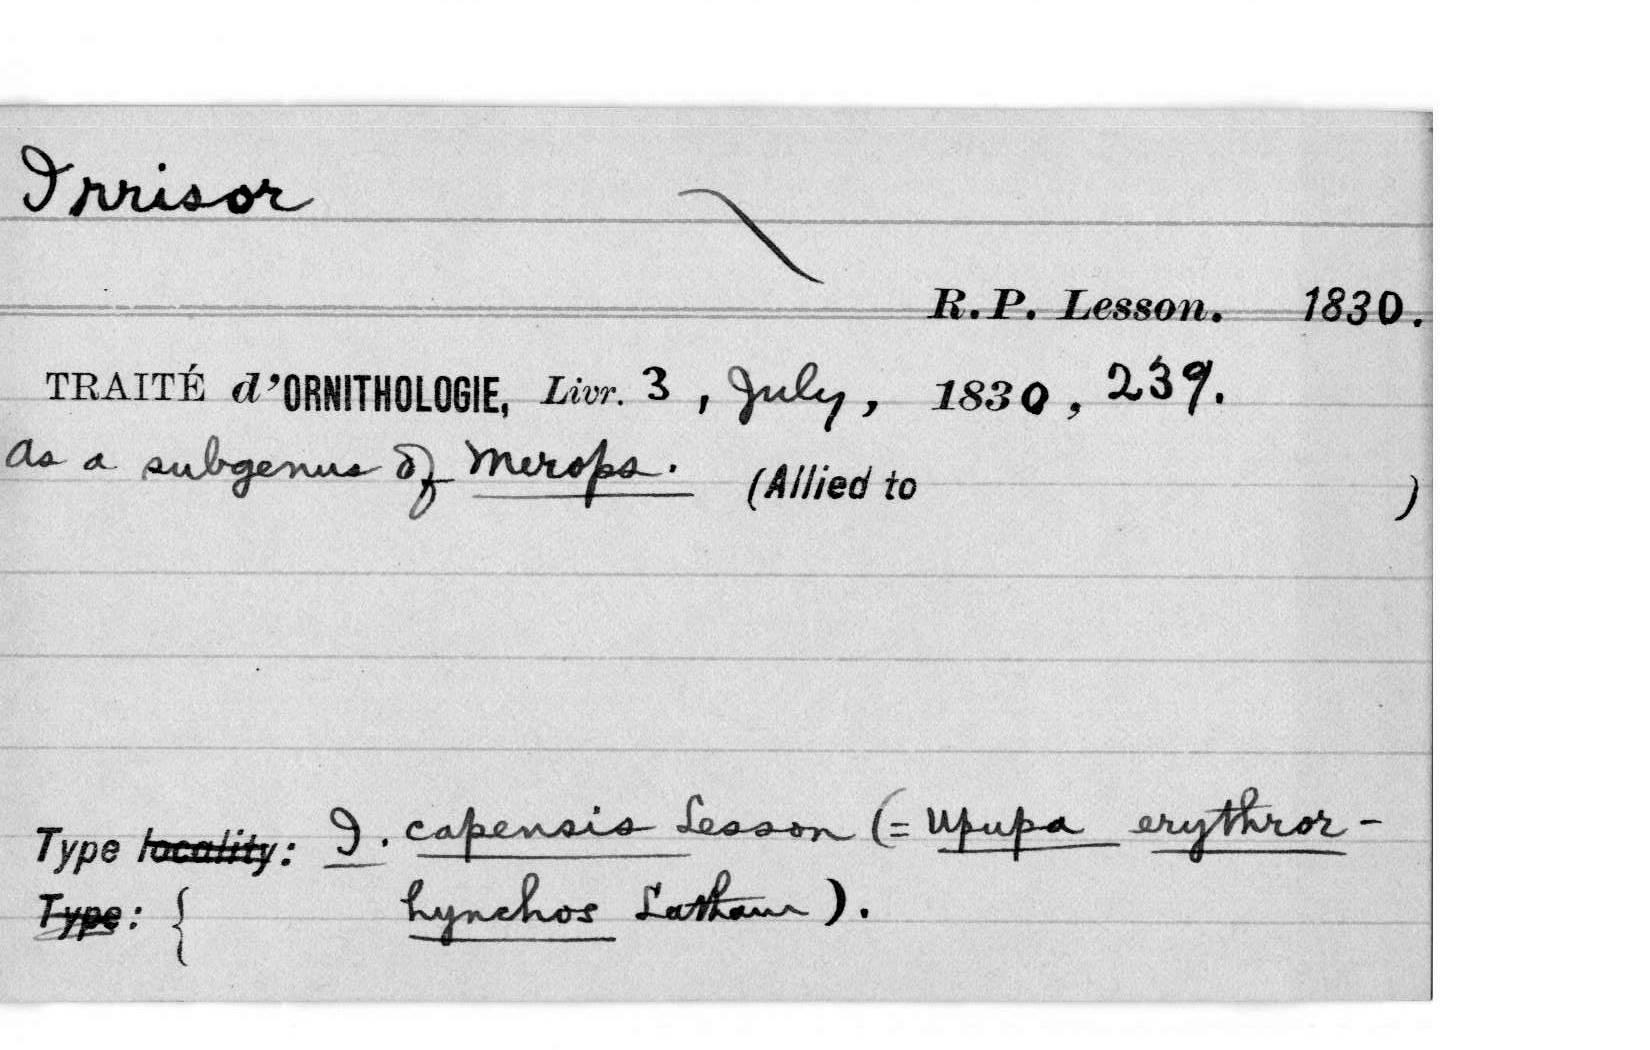 Irrisor
R.P. Lesson. 1830.
TRAITÉ d'ORNITHOLOGIE, Livr. 3, July, 1830, 239.
As a subgenus of Merops. (Allied to )
Type locality: I. capensis Lesson (= Upupa erythror-
Type: { hynchos Latham).